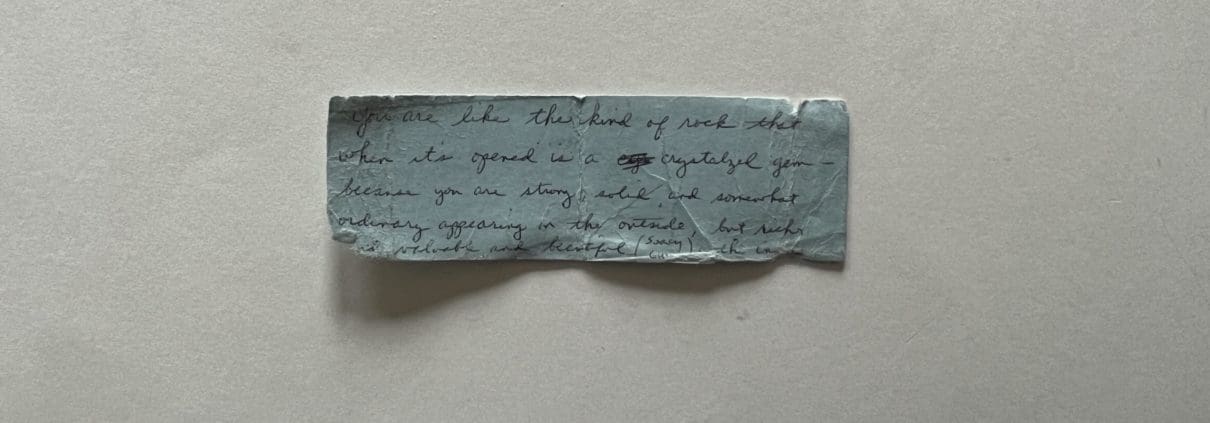 You are like the kind of rock that
when it's opened is a crystalzed gem –
because you are strong, solid, and somewhat
ordinary appearing on the outside, but
valuable and beautiful (